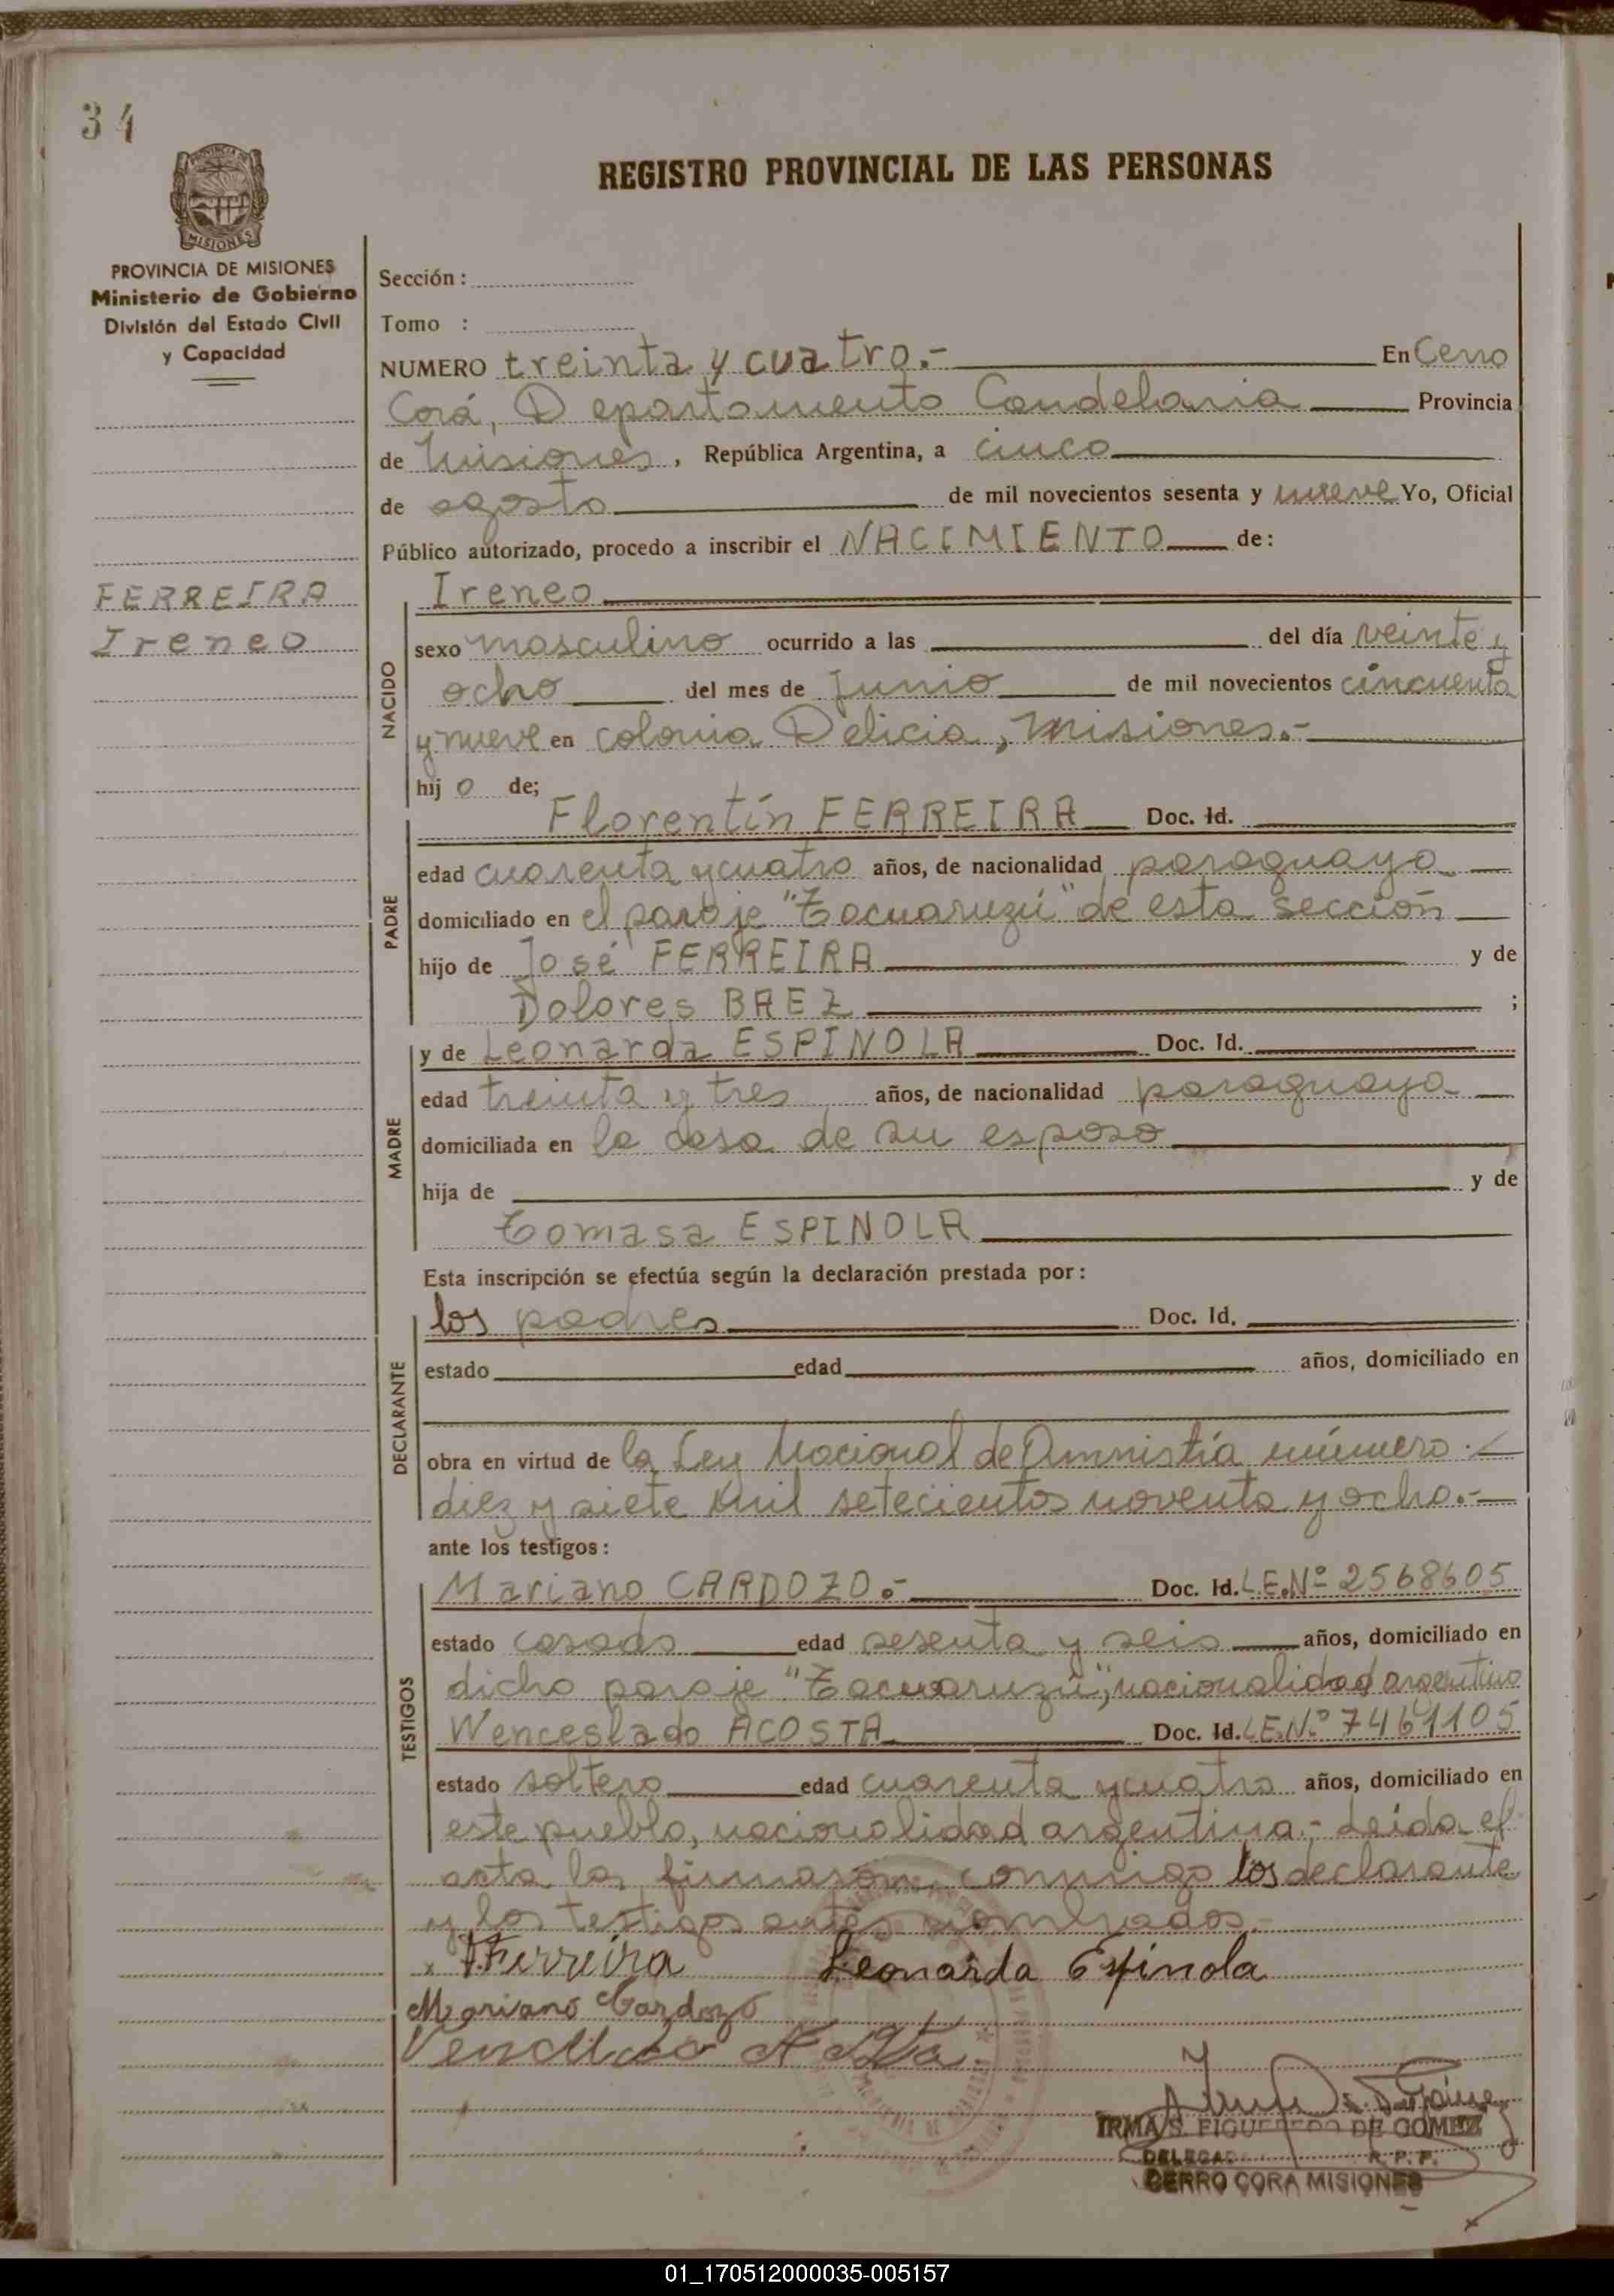 34
PROVINCIA DE
MISIONES
PROVINCIA DE MISIONES
Ministerio de Gobierno
División del Estado Civil
y Capacidad
REGISTRO PROVINCIAL DE LAS PERSONAS
Sección :
Tomo :
NUMERO treinta y cuatro.- En Cerro
Corá, Departamento Candelaria Provincia
de Misiones, República Argentina, a cinco
de agosto de mil novecientos sesenta y nueve Yo, Oficial
Público autorizado, procedo a inscribir el NACIMIENTO de:
FERREIRA
Ireneo
NACIDO
Ireneo
sexo masculino ocurrido a las del día veinte y
ocho del mes de junio de mil novecientos cincuenta
y nueve en colonia Delicia, Misiones.-
hij o de;
PADRE
Florentín FERREIRA Doc. Id.
edad cuarenta y cuatro años, de nacionalidad paraguaya
domiciliado en el paraje "Tacuaruzú" de esta sección
hijo de José FERREIRA y de
Dolores BAEZ ;
MADRE
y de Leonarda ESPINOLA Doc. Id.
edad treinta y tres años, de nacionalidad paraguaya
domiciliada en la casa de su esposo
hija de y de
Tomasa ESPINOLA
Esta inscripción se efectúa según la declaración prestada por:
DECLARANTE
los padres Doc. Id.
estado edad años, domiciliado en
obra en virtud de la Ley Nacional de Amnistía número
diez y siete mil setecientos noventa y ocho.-
ante los testigos:
TESTIGOS
Mariano CARDOZO.- Doc. Id. L.E.Nº 2568605
estado casado edad sesenta y seis años, domiciliado en
dicho paraje "Tacuaruzú", nacionalidad argentina
Wenceslado ACOSTA Doc. Id. L.E.Nº 7461105
estado soltero edad cuarenta y cuatro años, domiciliado en
este pueblo, nacionalidad argentina.- Leída el
acta la firmaron conmigo los declarante
y los testigos antes nombrados.-
x F.Ferreira Leonarda Espinola
Mariano Cardozo
IRMA S. FIGUEREDO DE GOMEZ
DELEGADA R. P. P.
CERRO CORA MISIONES
01_170512000035-005157